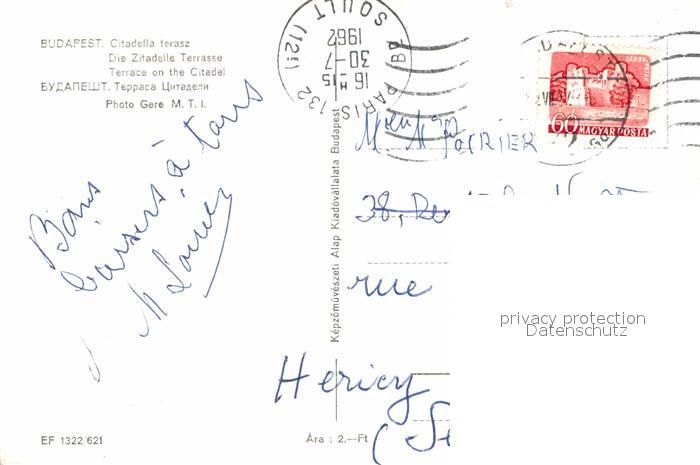 BUDAPEST. Citadella terasz
Die Zitadelle Terrasse
Terrace on the Citadel
БУДАПЕШТ. Терраса Цитадели
Photo Gere M. T. I.
Bons
baisers à tous
M
EF 1322/621
Ára : 2.—Ft
Képzőművészeti Alap Kiadóvállalata Budapest
78 PARIS 132
SOULT (12!)
16 H 15
30-7
1962
SÁROSPATAK
60 MAGYAR POSTA
38,
rue
Hericy
(Se
privacy protection
Datenschutz